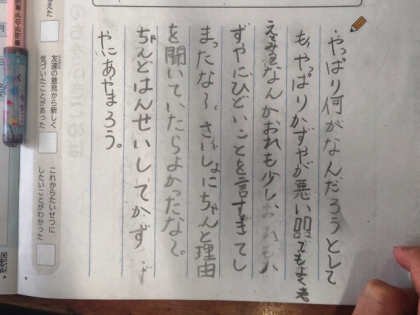 やっぱり何がなんだろうとして
も、やっぱりかずやが悪い!!!!でもよく考
えみるなんかおれも少し
ずやにひどいことを言すぎてし
まったな～。さいしょにちゃんと理由
を聞いていたらよかったな～。
ちゃんとはんせいしてかず
やにあやまろう。
友達の意見から新しく
気づいたことがあった
これからたいせつに
したいことがわかった